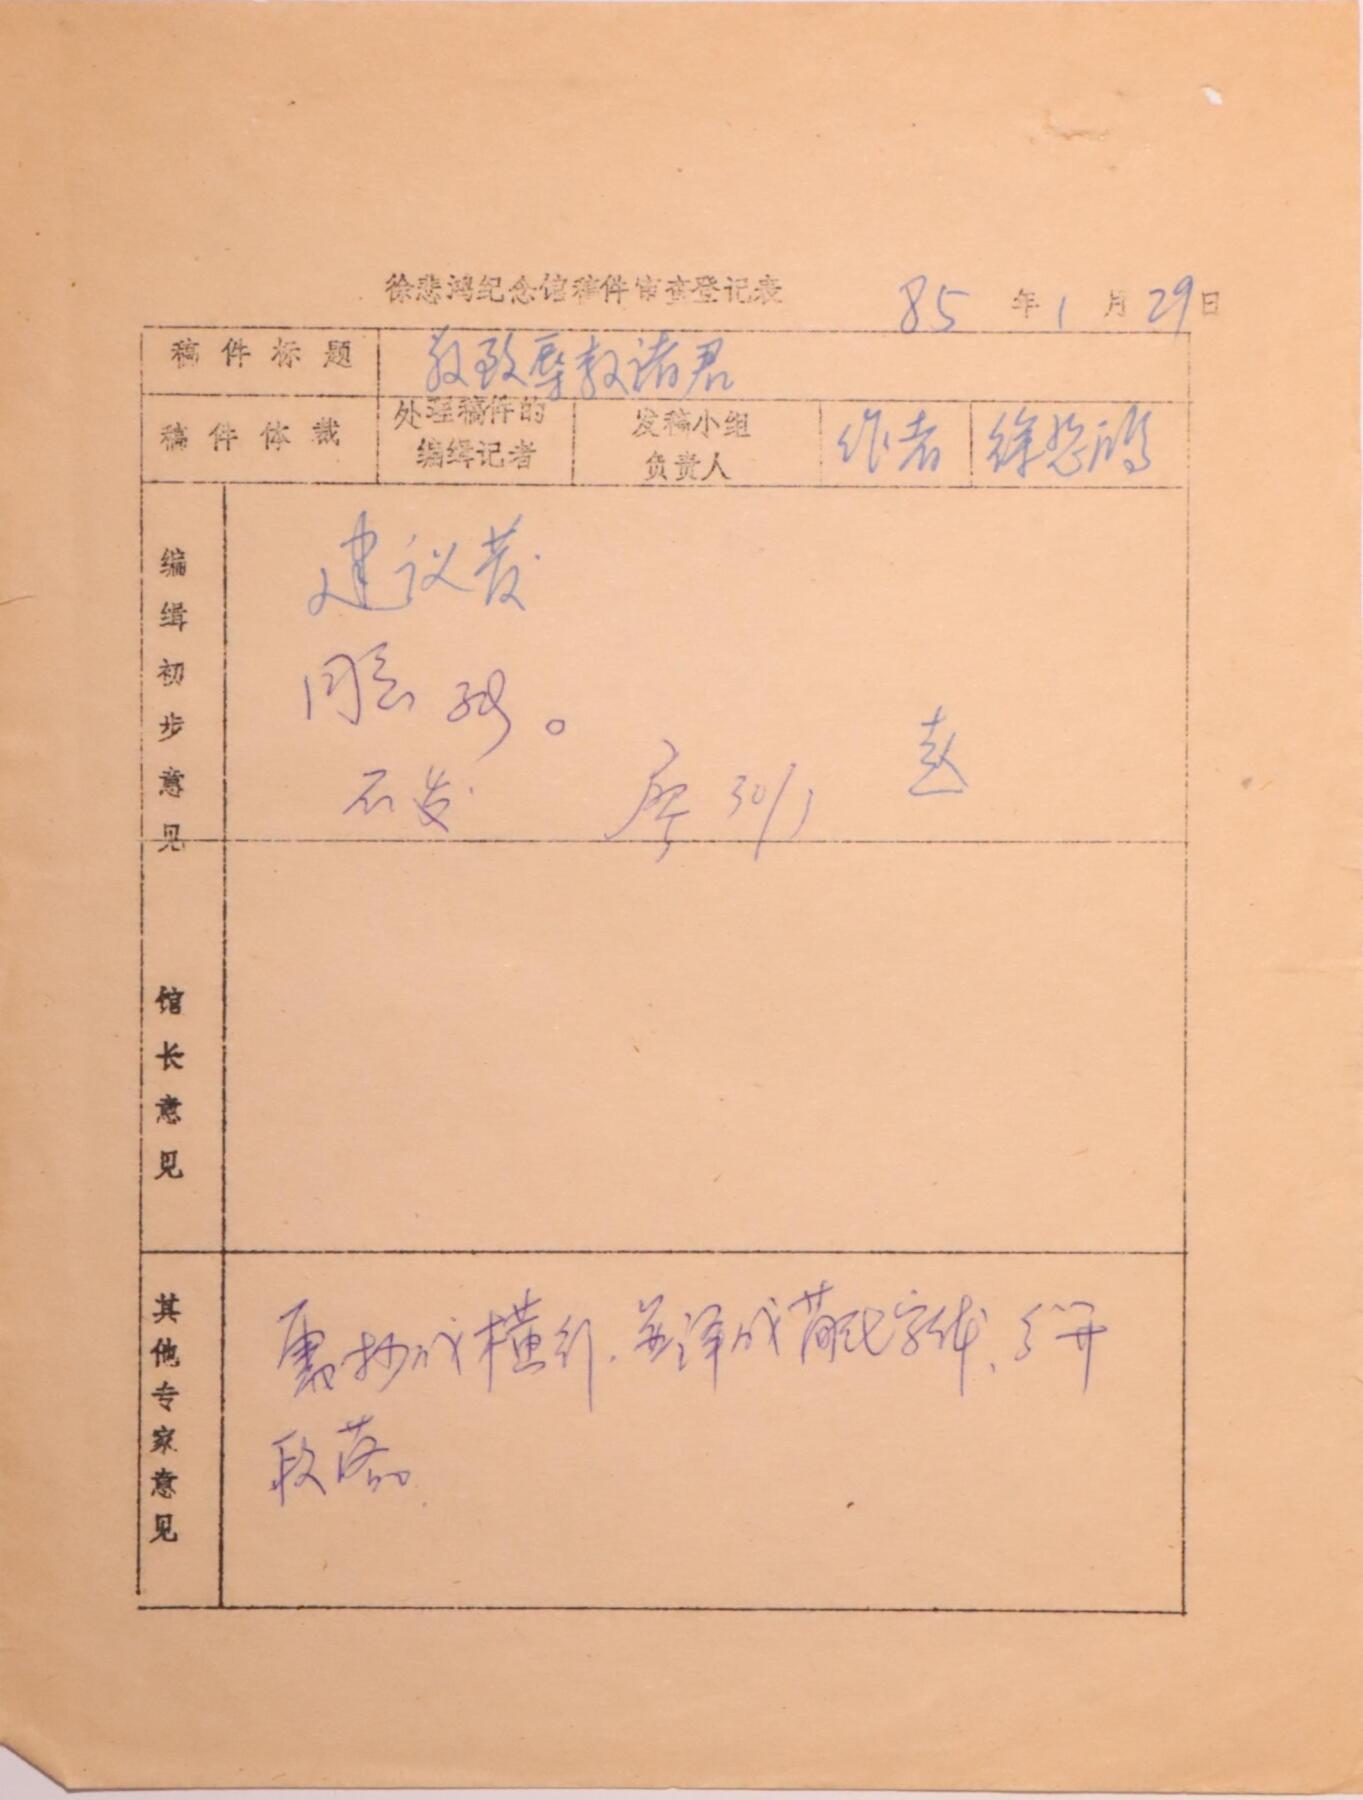 徐悲鸿纪念馆稿件审查登记表
85年1月29日
稿件标题 敬致 教诸君
稿件体裁 处理稿件的编辑记者 发稿小组负责人 作者 徐悲鸿
编辑初步意见
建议发
同意
不发 廖 30/1 赵
馆长意见
其他专家意见
需抄成横行、并译成简化字体、分开
段落